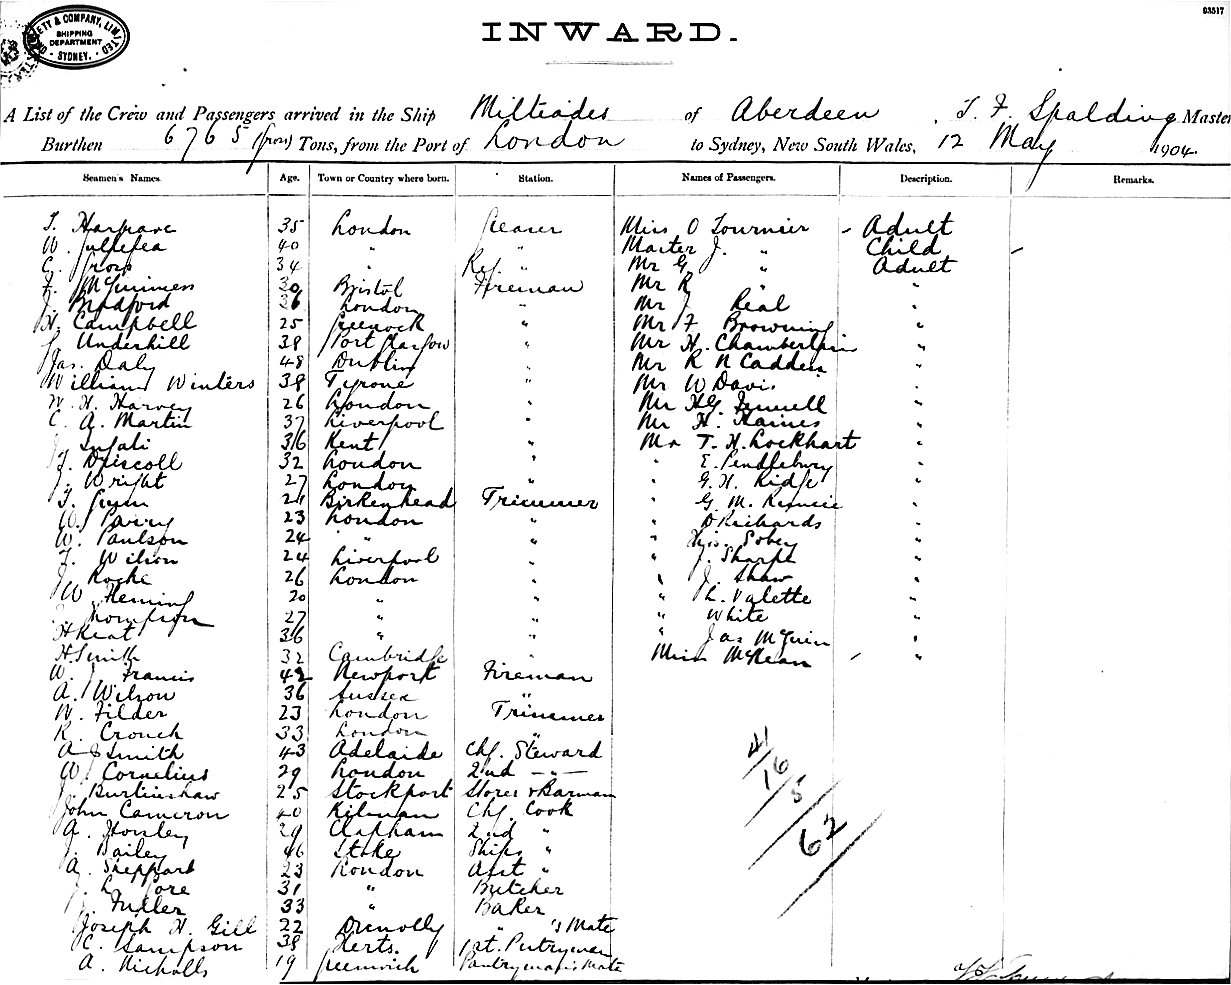 03517
& COMPANY, LIMITED
SHIPPING
DEPARTMENT
SYDNEY.
INWARD.
A List of the Crew and Passengers arrived in the Ship Miltiades of Aberdeen, T. F. Spalding Master
Burthen 6765 Tons, from the Port of London to Sydney, New South Wales, 12 May 1904.
Seamen's Names. Age. Town or Country where born. Station. Names of Passengers. Description. Remarks.
T. Hargrave 35 London Greaser Miss O Tournier - Adult
W. 40 " " Master J. " Child -
C. 34 " Ref. " Mr G. " Adult
F. McGuinness 30 Bristol Fireman Mr R " "
J. Bradford 36 London " Mr J Real "
H. Campbell 25 Greenock " Mr F Browning "
Underhill 38 Port Glasgow " Mr H. Chamberlain "
Jas. Daly 48 Dublin " Mr R N Cadden "
William Winters 38 Tyrone " Mr W Davis "
W. H. Harvey 26 London " Mr HG "
C. A. Martin 37 Liverpool " Mr H. Haines "
36 Kent " Mr T. H. Lockhart "
J. Driscoll 32 London " " E. Pendlebury "
J. Wright 27 London " " G. H. Ridge "
T. 21 Birkenhead Trimmer " G. M. "
W. Parry 23 London " " D Richards "
W. Paulson 24 " " " "
F. Wilson 24 Liverpool " " J. Sharpe "
J. Roche 26 London " " J. Shaw "
W. Fleming 20 " " " L. Valette "
Thompson 27 " " " White "
H Keat 36 " " " Jas McGuin "
H. Smith 32 Cambridge " Miss McKean - "
W. J. Francis 42 Newport Fireman
A. Wilson 36 Sussex "
W. Filder 23 London Trimmer
R. Crouch 33 London "
A J Smith 43 Adelaide Chf. Steward
W. Cornelius 29 London 2nd -"-
J. Burtinshaw 25 Stockport Stores & Barman
John Cameron 40 Chf. Cook
A. 29 Clapham 2nd "
J. Bailey 46 Stoke Ships "
A. Sheppard 23 London Asst "
J. L. Gore 31 " Butcher
J. Fuller 33 " Baker
Joseph H. Gill 22 " 's Mate
C. Sampson 38 Herts. 1st. Pantryman
A. Nicholls 19 Greenwich Pantryman's Mate
41
16
5
62